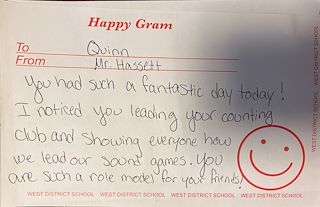 Happy Gram
To Quinn
From Mr. Hassett
You had such a fantastic day today!
I noticed you leading your counting
club and showing everyone how
we lead our sound games. You
are such a role model for your friends!
WEST DISTRICT SCHOOL WEST DISTRICT SCHOOL WEST DISTRICT SCHOOL WEST DISTRICT SCHOOL
WEST DISTRICT SCHOOL WEST DISTRICT SCHOOL